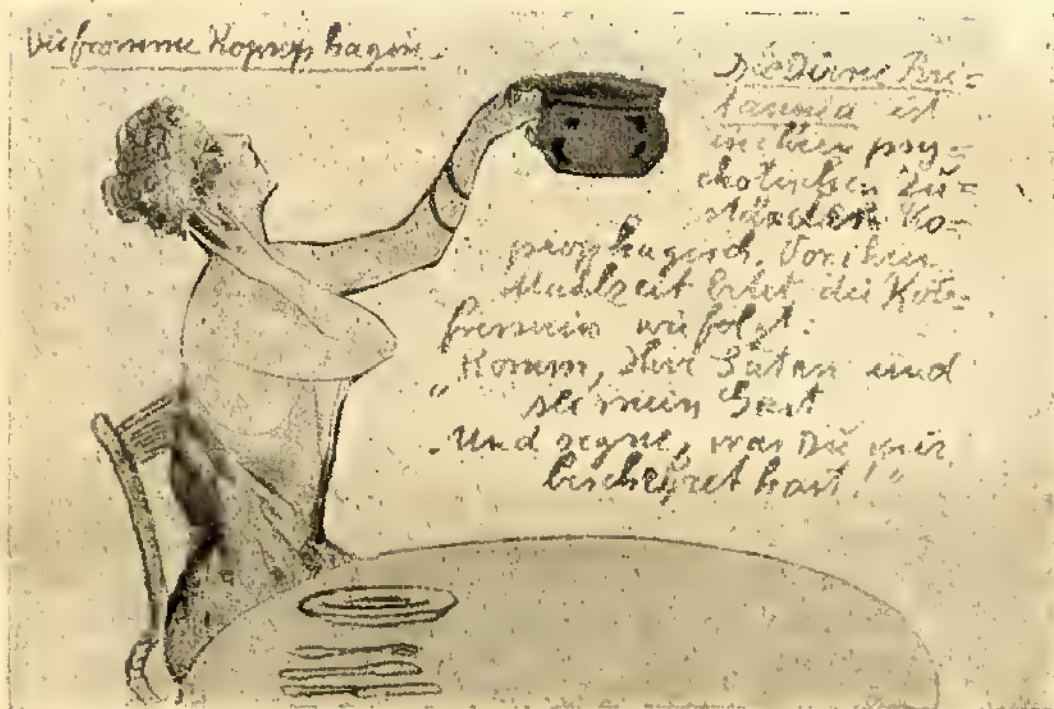 Die fromme Koprophagin.
Die Dirne Bri-
tannia ist
in ihren psy-
chotischen Zu-
ständen Ko-
prophagisch. Vor ihrer
Mahlzeit betet die Kot-
fresserin wie folgt:
"Komm, Herr Satan und
sei mein Gast
Und segne, was Du mir
bescheret hast!"